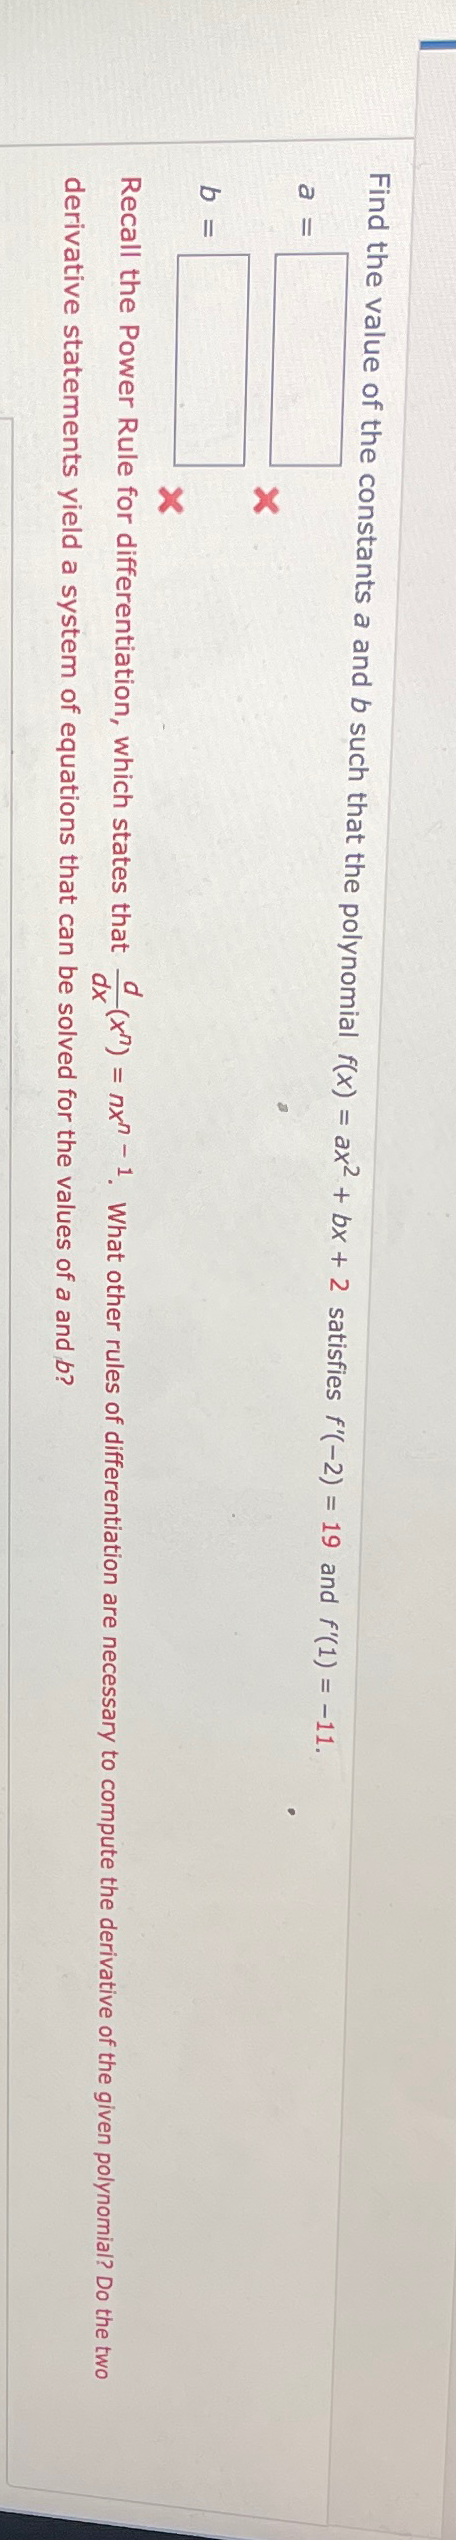 Find the value of the constants a and b such that the polynomial f(x) = ax² + bx + 2 satisfies f′(−2) = 19 and f′(1) = −11.
a =
b =
Recall the Power Rule for differentiation, which states that d/dx(xⁿ) = nxⁿ ⁻ ¹. What other rules of differentiation are necessary to compute the derivative of the given polynomial? Do the two
derivative statements yield a system of equations that can be solved for the values of a and b?